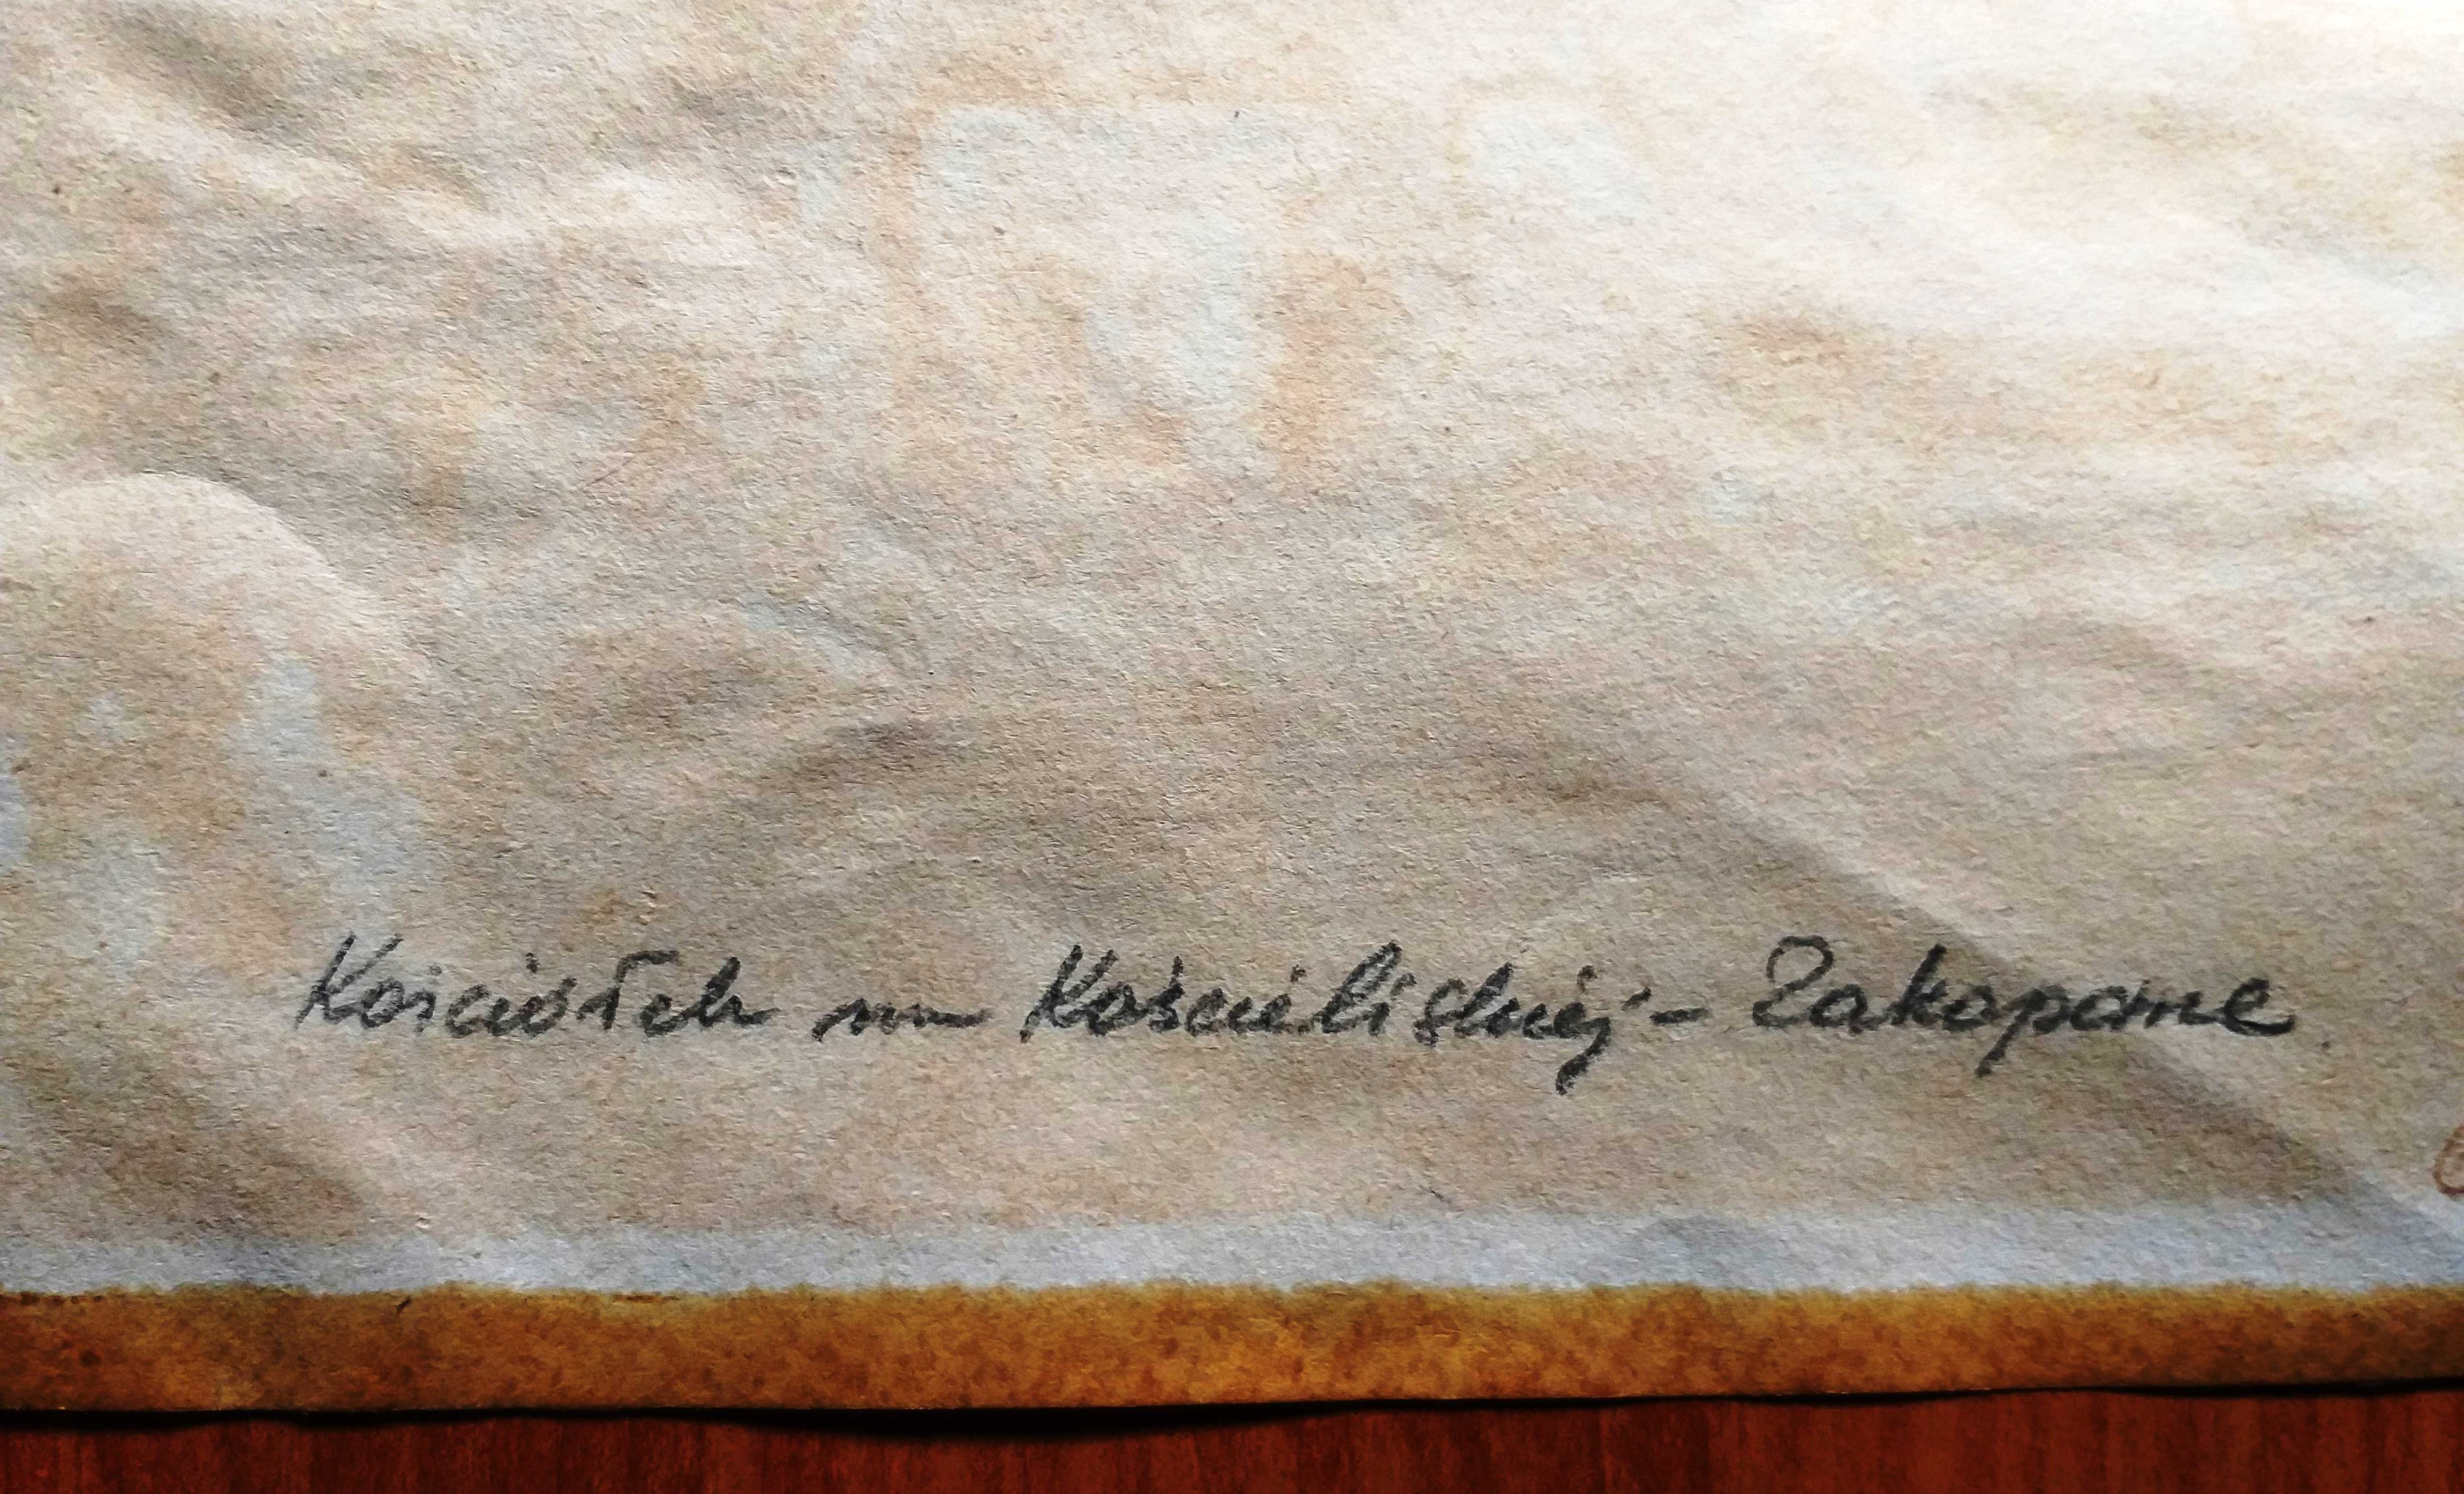 Kościółek na Kościeliskiej - Zakopane